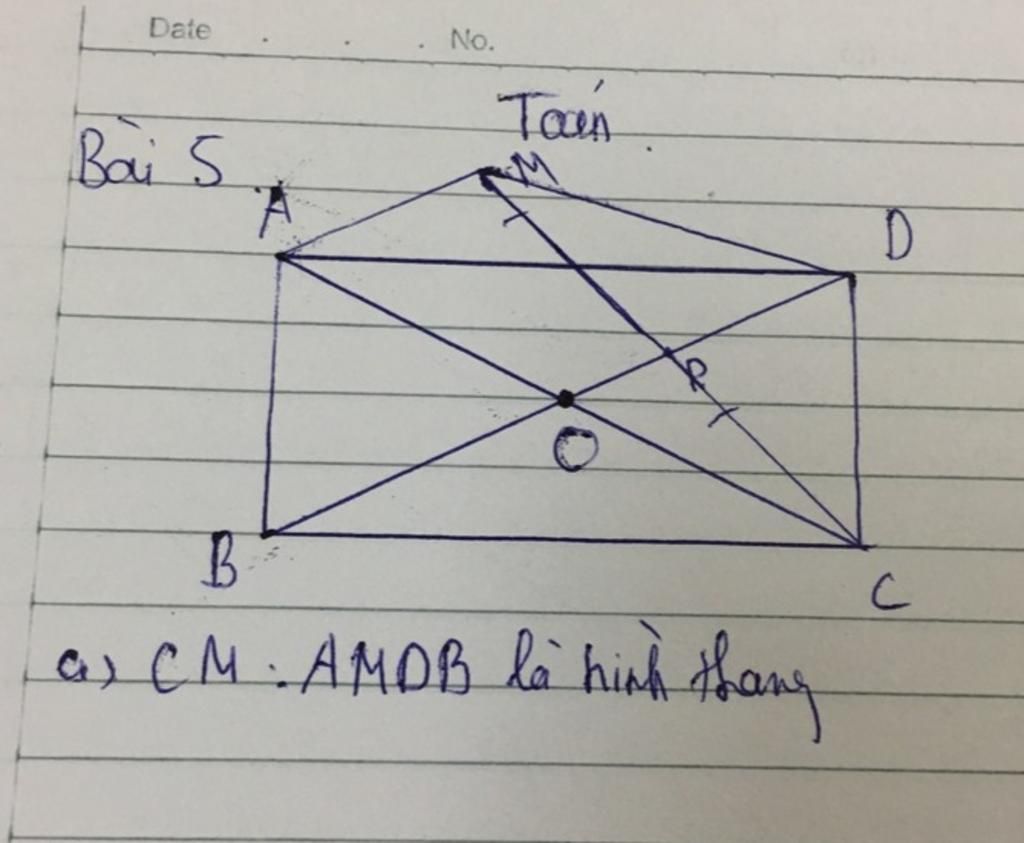 Date . . . No.
Toán
Bài 5
M
A
D
P
O
B
C
a) CM : AMDB là hình thang